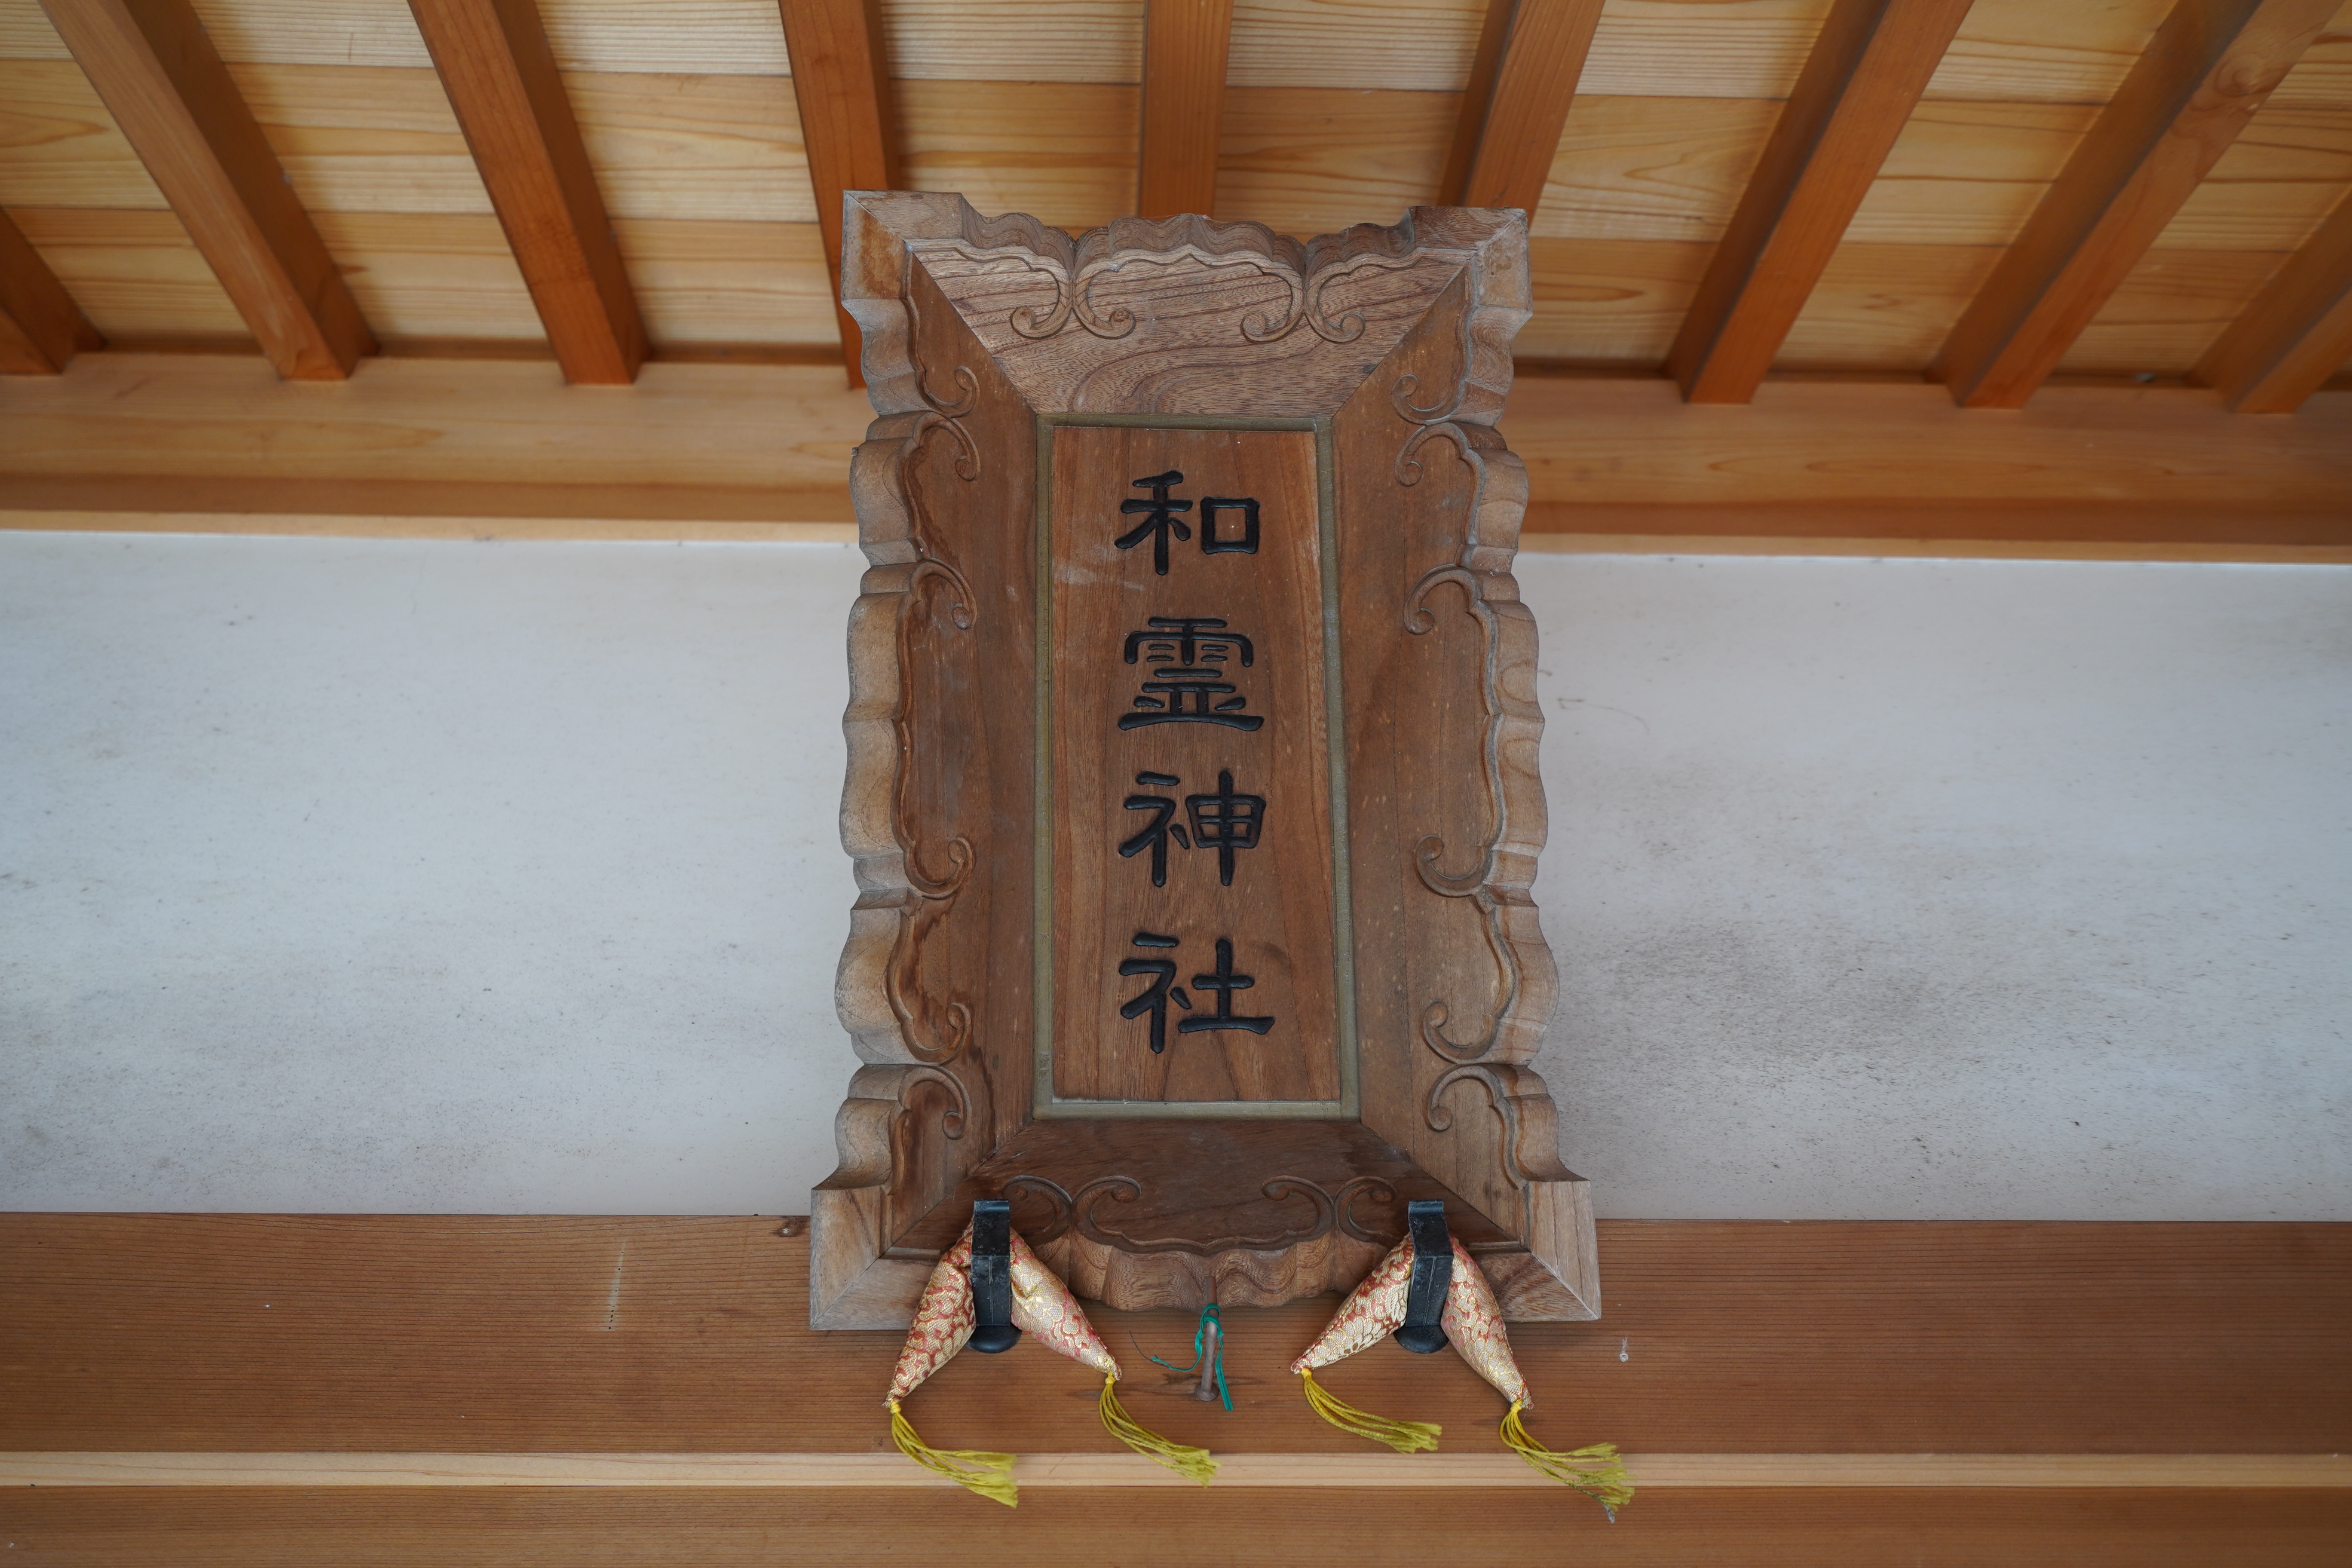 和霊神社